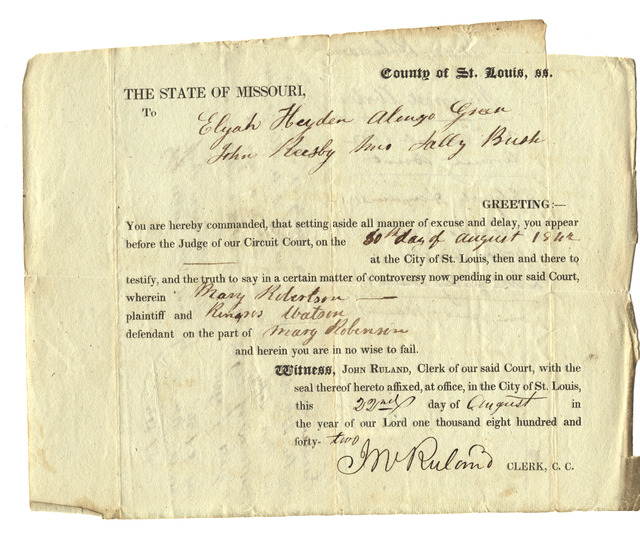 County of St. Louis, ss.
THE STATE OF MISSOURI,
To
Elijah Heyden Alonzo Green
John Reesby Mrs Sally Bush
GREETING:—
You are hereby commanded, that setting aside all manner of excuse and delay, you appear
before the Judge of our Circuit Court, on the 30th day of August 1842
at the City of St. Louis, then and there to
testify, and the truth to say in a certain matter of controversy now pending in our said Court,
wherein Mary Robertson —
plaintiff and Ringros Watson
defendant on the part of Mary Robinson
and herein you are in no wise to fail.
Witness, JOHN RULAND, Clerk of our said Court, with the
seal thereof hereto affixed, at office, in the City of St. Louis,
this 22nd day of August in
the year of our Lord one thousand eight hundred and
forty- two
Jno Ruland CLERK, C. C.